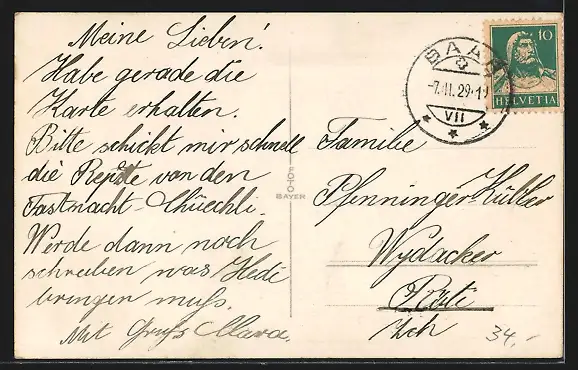 Meine Lieben!
Habe gerade die
Karte erhalten.
Bitte schickt mir schnell
die Rezepte von den
Fastnacht-Chüechli.
Werde dann noch
schreiben was Hedi
bringen muss.
Mit Gruss Clara.
FOTO
BAYER
BAAR
-7.II.29-1
VII
10
HELVETIA
Familie
Pfenninger-Küller
Wydacker
Rüti
Zch
34,-